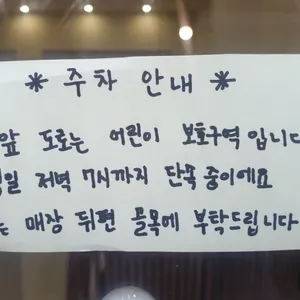 * 주차 안내 *
앞 도로는 어린이 보호구역 입니다
저녁 7시까지 단속 중이에요
매장 뒤편 골목에 부탁드립니다